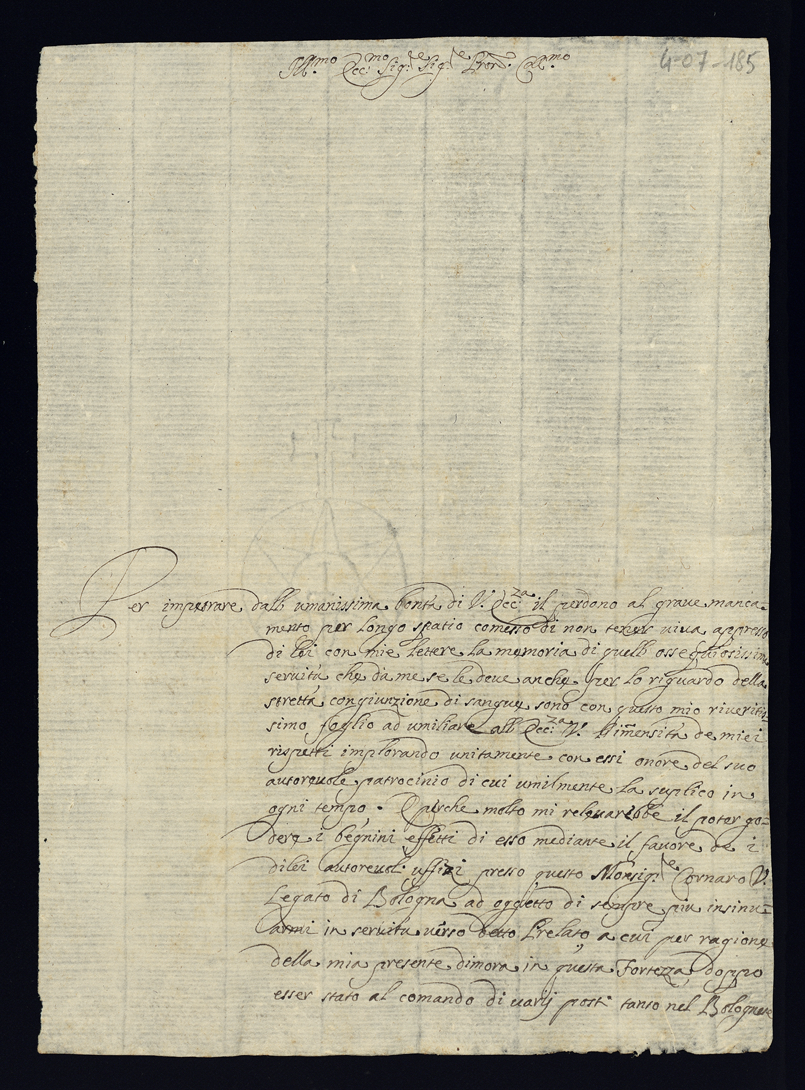 Ill.mo Ecc.mo Sig.re Sig.re Pron. Coll.mo
4-07-185
Per impetrare dalla umanissima bontà di V. Ecc.za il perdono al graue manca-
mento per longo spatio comesso di non tener uiua appresso
di lei con mie lettere la memoria di quella ossequiosissima
seruitù che da me se le deue anche per lo riguardo della
stretta congiunzione di sangue sono con questo mio riueritis-
simo foglio ad umiliare all' Ecc.za V. l'immensità de miei
rispetti implorando unitamente con essi onore del suo
autoreuole patrocinio di cui umilmente la suplico in
ogni tempo. E perche molto mi releuarebbe il poter go=
dere i begnini effetti di esso mediante il fauore de i
di lei autoreuoli uffizi presso questo Monsig.re Cornaro V.
Legato di Bologna ad oggetto di sempre piu insinu=
armi in seruitù uerso detto Prelato a cui per ragione
della mia presente dimora in questa Fortezza doppo
esser stato al comando di uarij posti tanto nel Bolognese